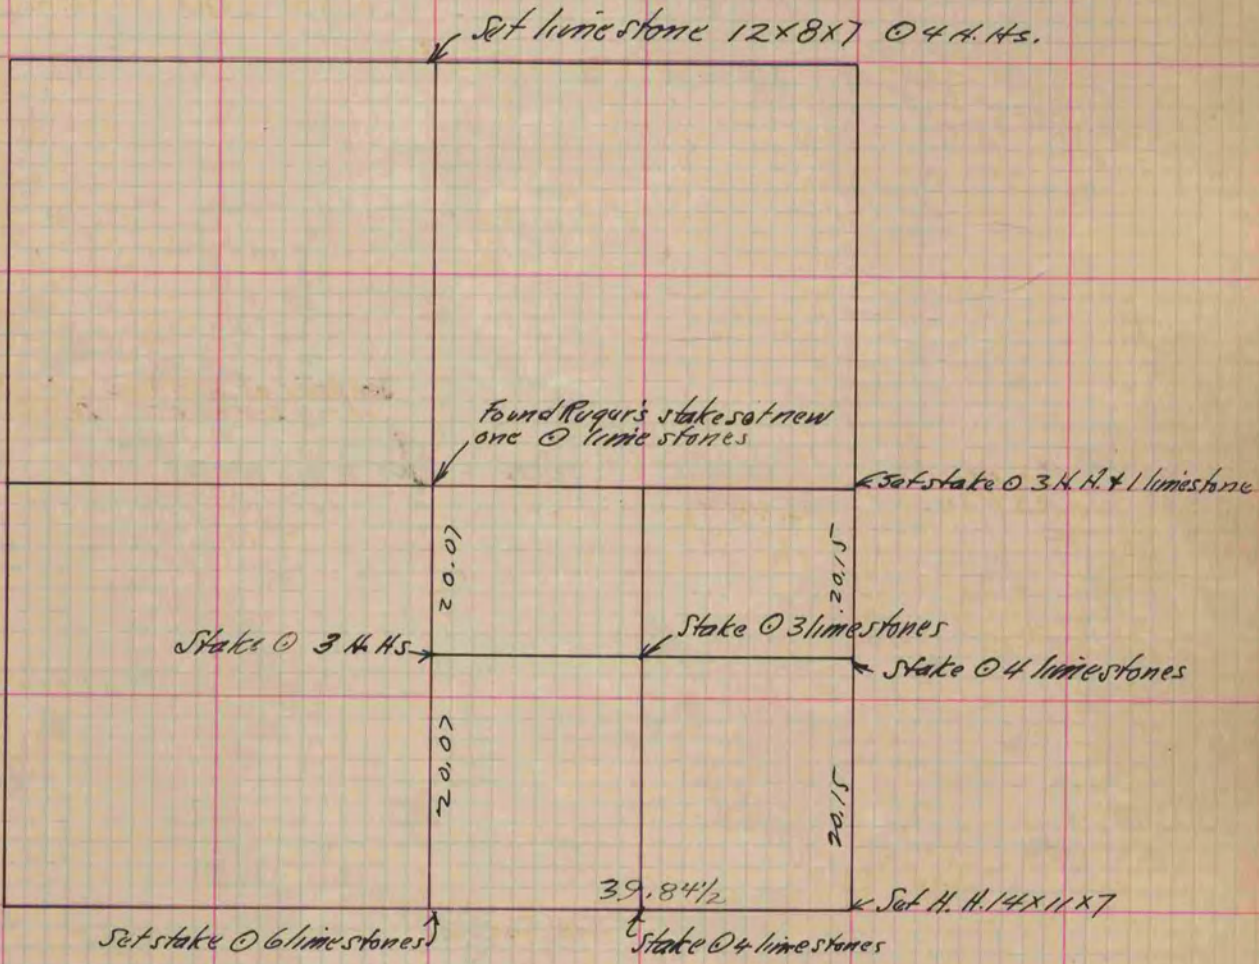 Set limestone 12x8x7 ⊙ 4 H. Hs.
Found Rugar's stake set new
one ⊙ lime stones
Set stake ⊙ 3 H. H. & 1 limestone
20.07
20.15
Stake ⊙ 3 limestones
Stake ⊙ 3 H. Hs
Stake ⊙ 4 limestones
20.07
20.15
39.84½
Set H. H. 14x11x7
Set stake ⊙ 6 limestones
Stake ⊙ 4 limestones